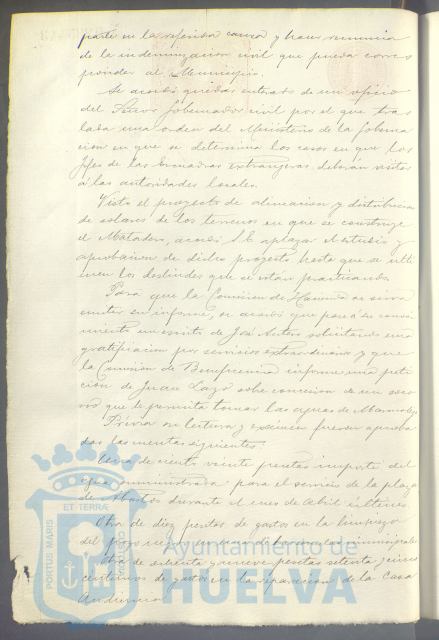 parte en la referida causa y hacer renuncia
de la indemnizacion civil que pueda corres
ponder al Municipio.
Se acordó quedar enterado de un oficio
del Señor Gobernador civil por el que tras
lada una orden del Ministerio de la Goberna
cion en que se determina los casos en que los
Jefes de las Escuadras extrangeras deberán visitar
á las autoridades locales.
Visto el proyecto de alineacion y distribucion
de solares de los terrenos en que se construye
el Matadero, acordó S.E. aplazar el estudio y
aprobacion de dicho proyecto hasta que se ulti
men los deslindes que se están practicando.
Para que la Comision de Hacienda se sirva
emitir su informe, se acordó que pase á su conoci
miento un escrito de José solicitando una
gratificacion por servicios extraordinarios y que
la Comision de Beneficencia informe una peti
cion de Juan Lazo sobre concesion de un soco
rro que le permita tomar las aguas de Marmolejo.
Prévia su lectura y exámen fueron aproba
das las cuentas siguientes.
Una de ciento veinte pesetas importe del
agua suministrada para el servicio de la plaza
de Abastos durante el mes de Abril último.
Otra de diez pesetas de gastos en la limpieza
del pozo
Otra de setenta y nueve pesetas setenta y cinco
centimos de gastos en la reparacion de la Casa
Audiencia
PORTUS MARIS
ET TERRAE
CUSTODIA
Ayuntamiento de
HUELVA